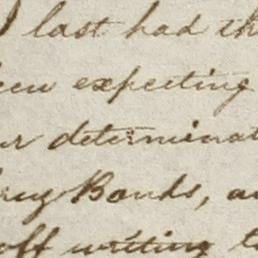 I last had th
een expecting
ur determinat
Bonds, a
off writing t